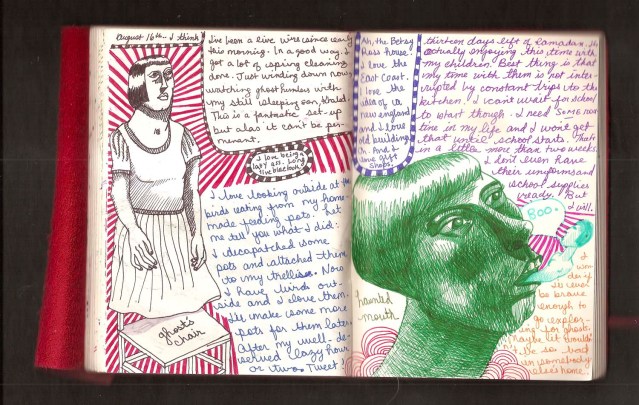 August 16th - I think
I've been a live wire since early
this morning. In a good way. I
got a lot of spring cleaning
done. Just winding down now
watching ghost hunters with
my still sleeping son,
This is a fantastic set-up
but alas it can't be per-
manent.
I love being a
lazy ass. Long
live blacktown
I love looking outside at the
birds eating from my home-
made feeding pots. Let
me tell you what I did.
I decapatched some
pots and attached them
to my trellises. Now
I have birds out-
side and I love them.
I'll make some more
pots for them later.
After my well-de-
served lazy hour
or two. Tweet!
ghost's
chair
Ah, the Betsy
Ross house!
I love the
East Coast.
I love the
idea of a
new england
and I love
old buildings
Oh. And I
love gift
shops.
thirteen days left of Ramadan. I'm
actually enjoying this time with
my children. Best thing is that
my time with them is not inter-
rupted by constant trips to the
kitchen. I can't wait for school
to start though. I need some now
time in my life and I won't get
that until school starts. That's
in a little more than two weeks.
I don't even have
their uniforms and
school supplies
ready. But
I will.
BOO.
haunted
mouth
I
won-
der if
I'll ever
be brave
enough to
go explor-
ing for ghosts.
Maybe it wouldn't
be so bad
in somebody
else's home.